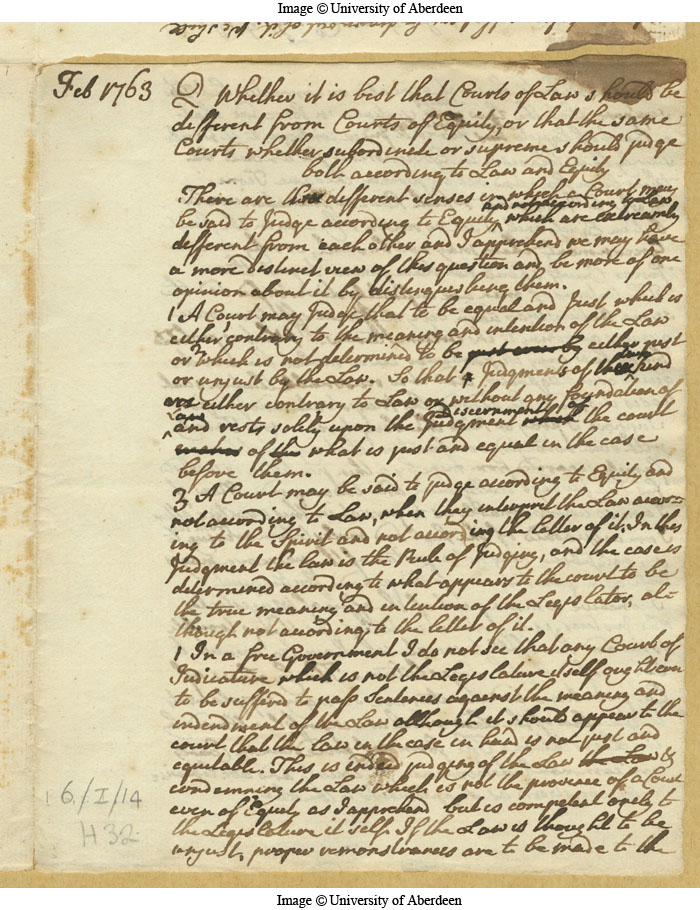 Image © University of Aberdeen
Feb 1763
Q Whether it is best that Courts of Law should be
different from Courts of Equity, or that the same
Courts whether subordinate or supreme should judge
both according to Law and Equity
There are two different senses in which a Court may
and not according to Law
be said to Judge according to Equity which are extreamly
different from each other and I apprehend we may have
a more distinct view of this question and be more of one
opinion about it by distinguishing them.
1 A Court may Judge that to be equal and Just which is
either contrary to the meaning and intention of the Law
or which is not determined to be either just
or unjust by the Law. So that Judgments of this kind
are either contrary to Law or without any foundation of
Law and rests solely upon the discernment of the court
of what is just and equal in the case
before them.
2 A Court may be said to judge according to Equity and
not according to Law, when they interpret the Law accor-
ing to the Spirit and not according the letter of it. In this
Judgment the law is the Rule of Judging, and the case is
determined according to what appears to the court to be
the true meaning and intention of the Legislator, al-
though not according to the letter of it.
1 In a free Government I do not see that any Court of
Judicature which is not the Legislature itself ought ever
to be sufferd to pass Sentences against the meaning and
intendment of the Law although it should appear to the
court that the law in the case in hand is not just and
equitable. This is indeed judging of the Law the Law &
condemning the Law which is not the province of a Court
even of Equity as I apprehend but is competent onely to
the Legislature it self. If the Law is thought to be
unjust, proper remonstrances are to be made to the
6/I/14
H32
Image © University of Aberdeen